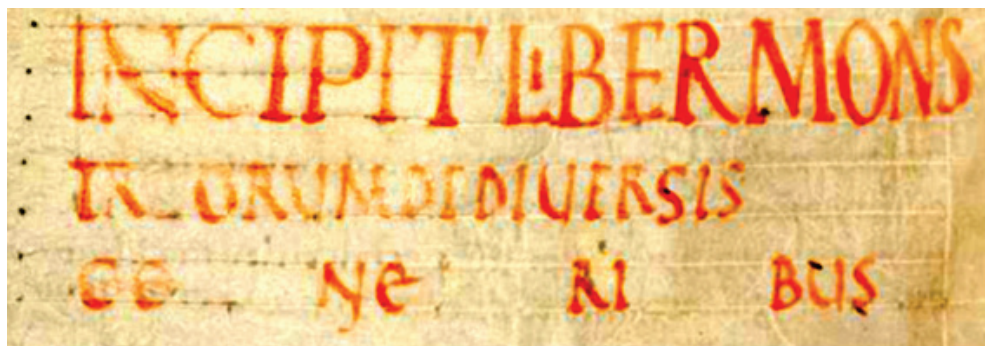 INCIPIT LIBER MONS
TRORUM DE DIUERSIS
GE NE RI BUS